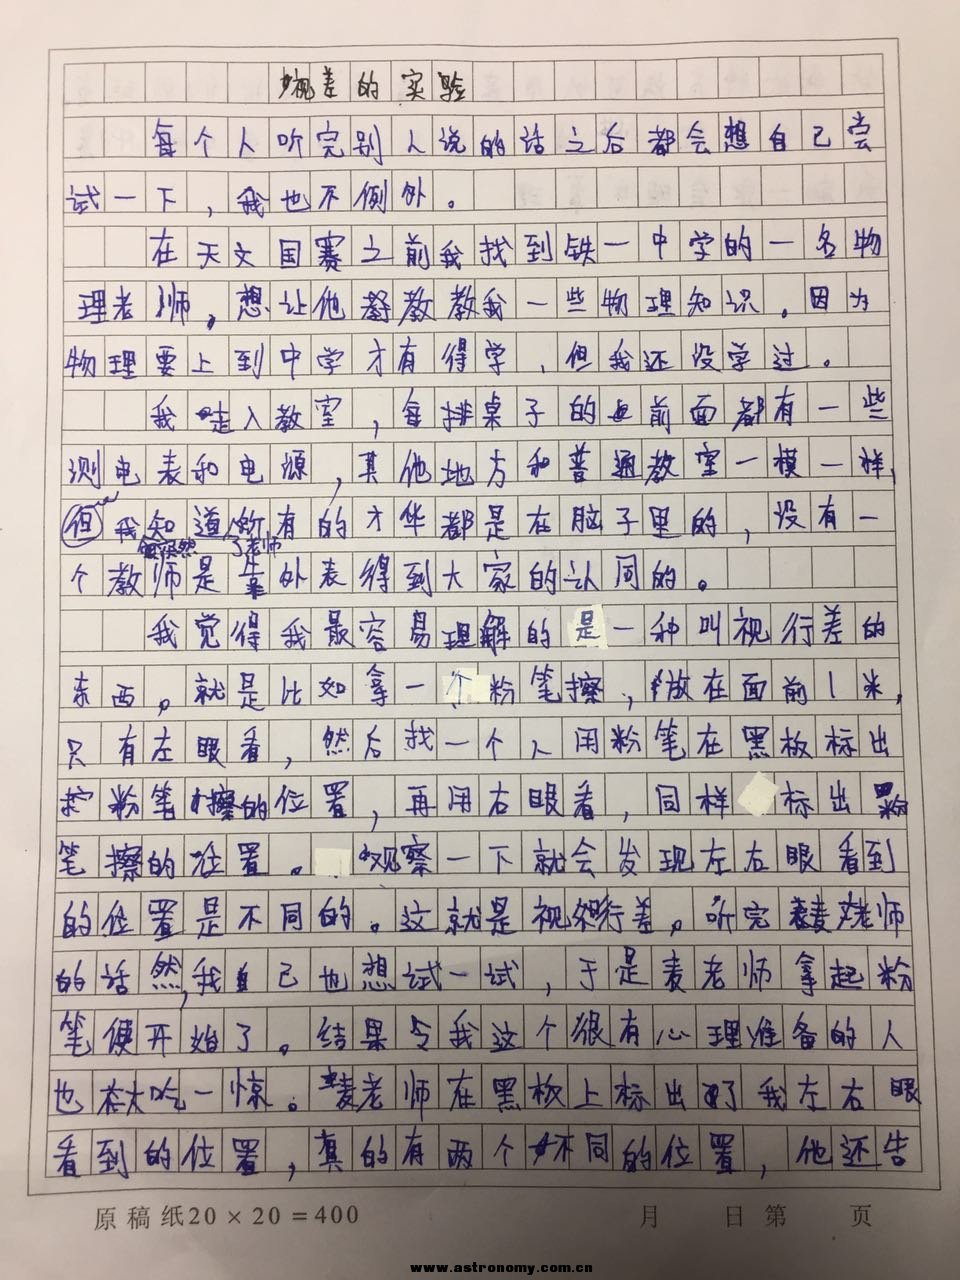 视差的实验
每个人听完别人说的话之后都会想自己尝
试一下，我也不例外。
在天文国赛之前我找到铁一中学的一名物
理老师，想让他教教我一些物理知识。因为
物理要上到中学才有得学，但我还没学过。
我走入教室，每排桌子的前面都有一些
测电表和电源，其他地方和普通教室一模一样，
但我知道所有的才华都是在脑子里的，没有一
个教师是靠外表得到大家的认同的。
我觉得我最容易理解的是一种叫视行差的
东西。就是比如拿一个粉笔擦，放在面前1米，
只有左眼看，然后找一个人用粉笔在黑板标出
粉笔擦的位置，再用右眼看，同样标出粉
笔擦的位置。观察一下就会发现左右眼看到
的位置是不同的。这就是视行差。听完麦老师
的话然，我自己也想试一试，于是麦老师拿起粉
笔便开始了。结果令我这个很有心理准备的人
也大吃一惊。麦老师在黑板上标出了我左右眼
看到的位置，真的有两个不同的位置，他还告
原稿纸20×20=400 月 日第 页
www.astronomy.com.cn